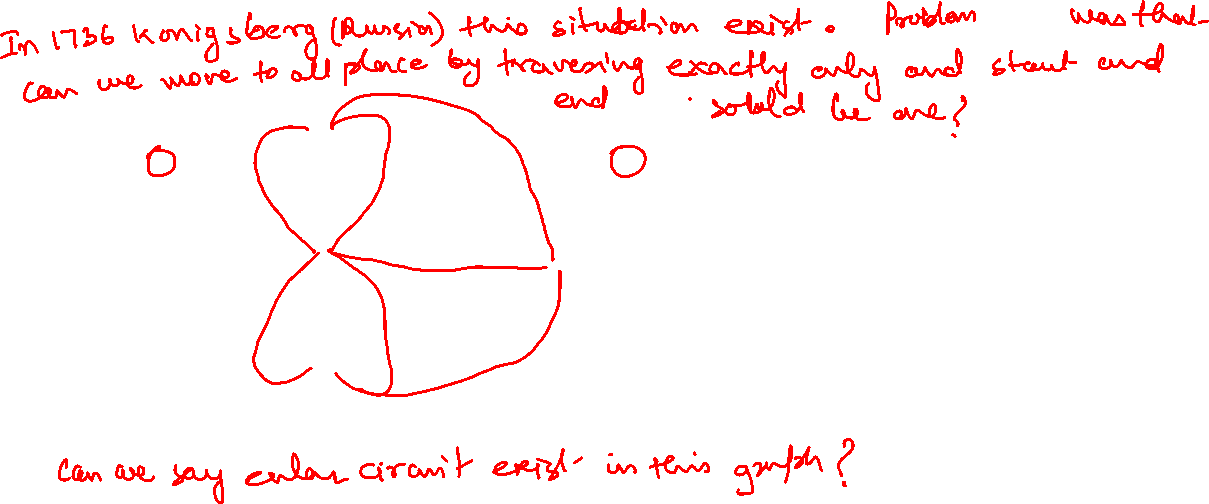 In 1736 Konigsberg (Russia) this situation exist. Problem was that
can we move to all place by traversing exactly only and start and
end should be one?
Can we say euler circuit exist in this graph?